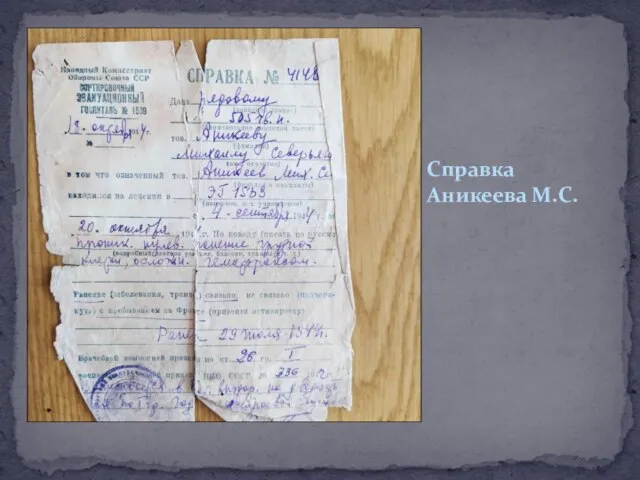 Народный Комиссариат
Обороны Союза ССР
СОРТИРОВОЧНЫЙ
ЭВАКУАЦИОННЫЙ
ГОСПИТАЛЬ № 1539
18. октября
№
СПРАВКА № 4148
Дана рядовому
505 гв.п.
тов. Аникееву
Михаилу Северьян
в том что означенный тов. Аникеев Мих. Се
находился на лечении в ЭГ 1539
с 4 - сентября 1944
20. октября 194 г. По поводу (писать по русски
проник. пулев. ранение грудной
клетки, осложн. гемотораксом.
Ранение (заболевание, травма) связано, не связано (подчерк-
нуть) с пребыванием на Фронте
Ранен 29 июля 1944г.
Врачебной комиссией признан по ст. 26 гр. I
336
Справка
Аникеева М.С.